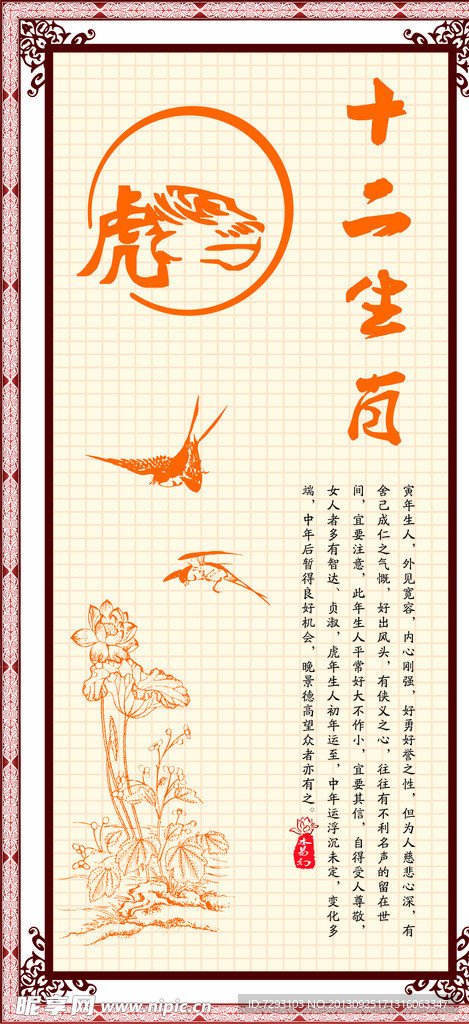 十二生肖
虎
寅年生人，外见宽容，内心刚强，好勇好誉之性，但为人慈悲心深，有
舍己成仁之气慨，好出风头，有侠义之心，往往有不利名声的留在世
间，宜要注意，此年生人平常好大不作小，宜要其信，自得受人尊敬，
女人者多有智达、贞淑，虎年生人初年运至，中年运浮沉未定，变化多
端，中年后暂得良好机会，晚景德高望众者亦有之。
昵享网 www.nipic.cn
ID:7293103 NO:20130925171316063347